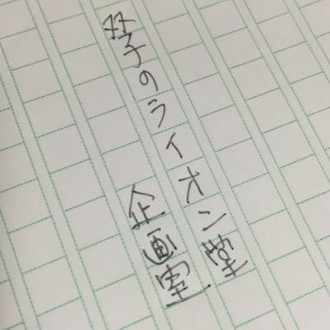 双子のライオン堂
企画室